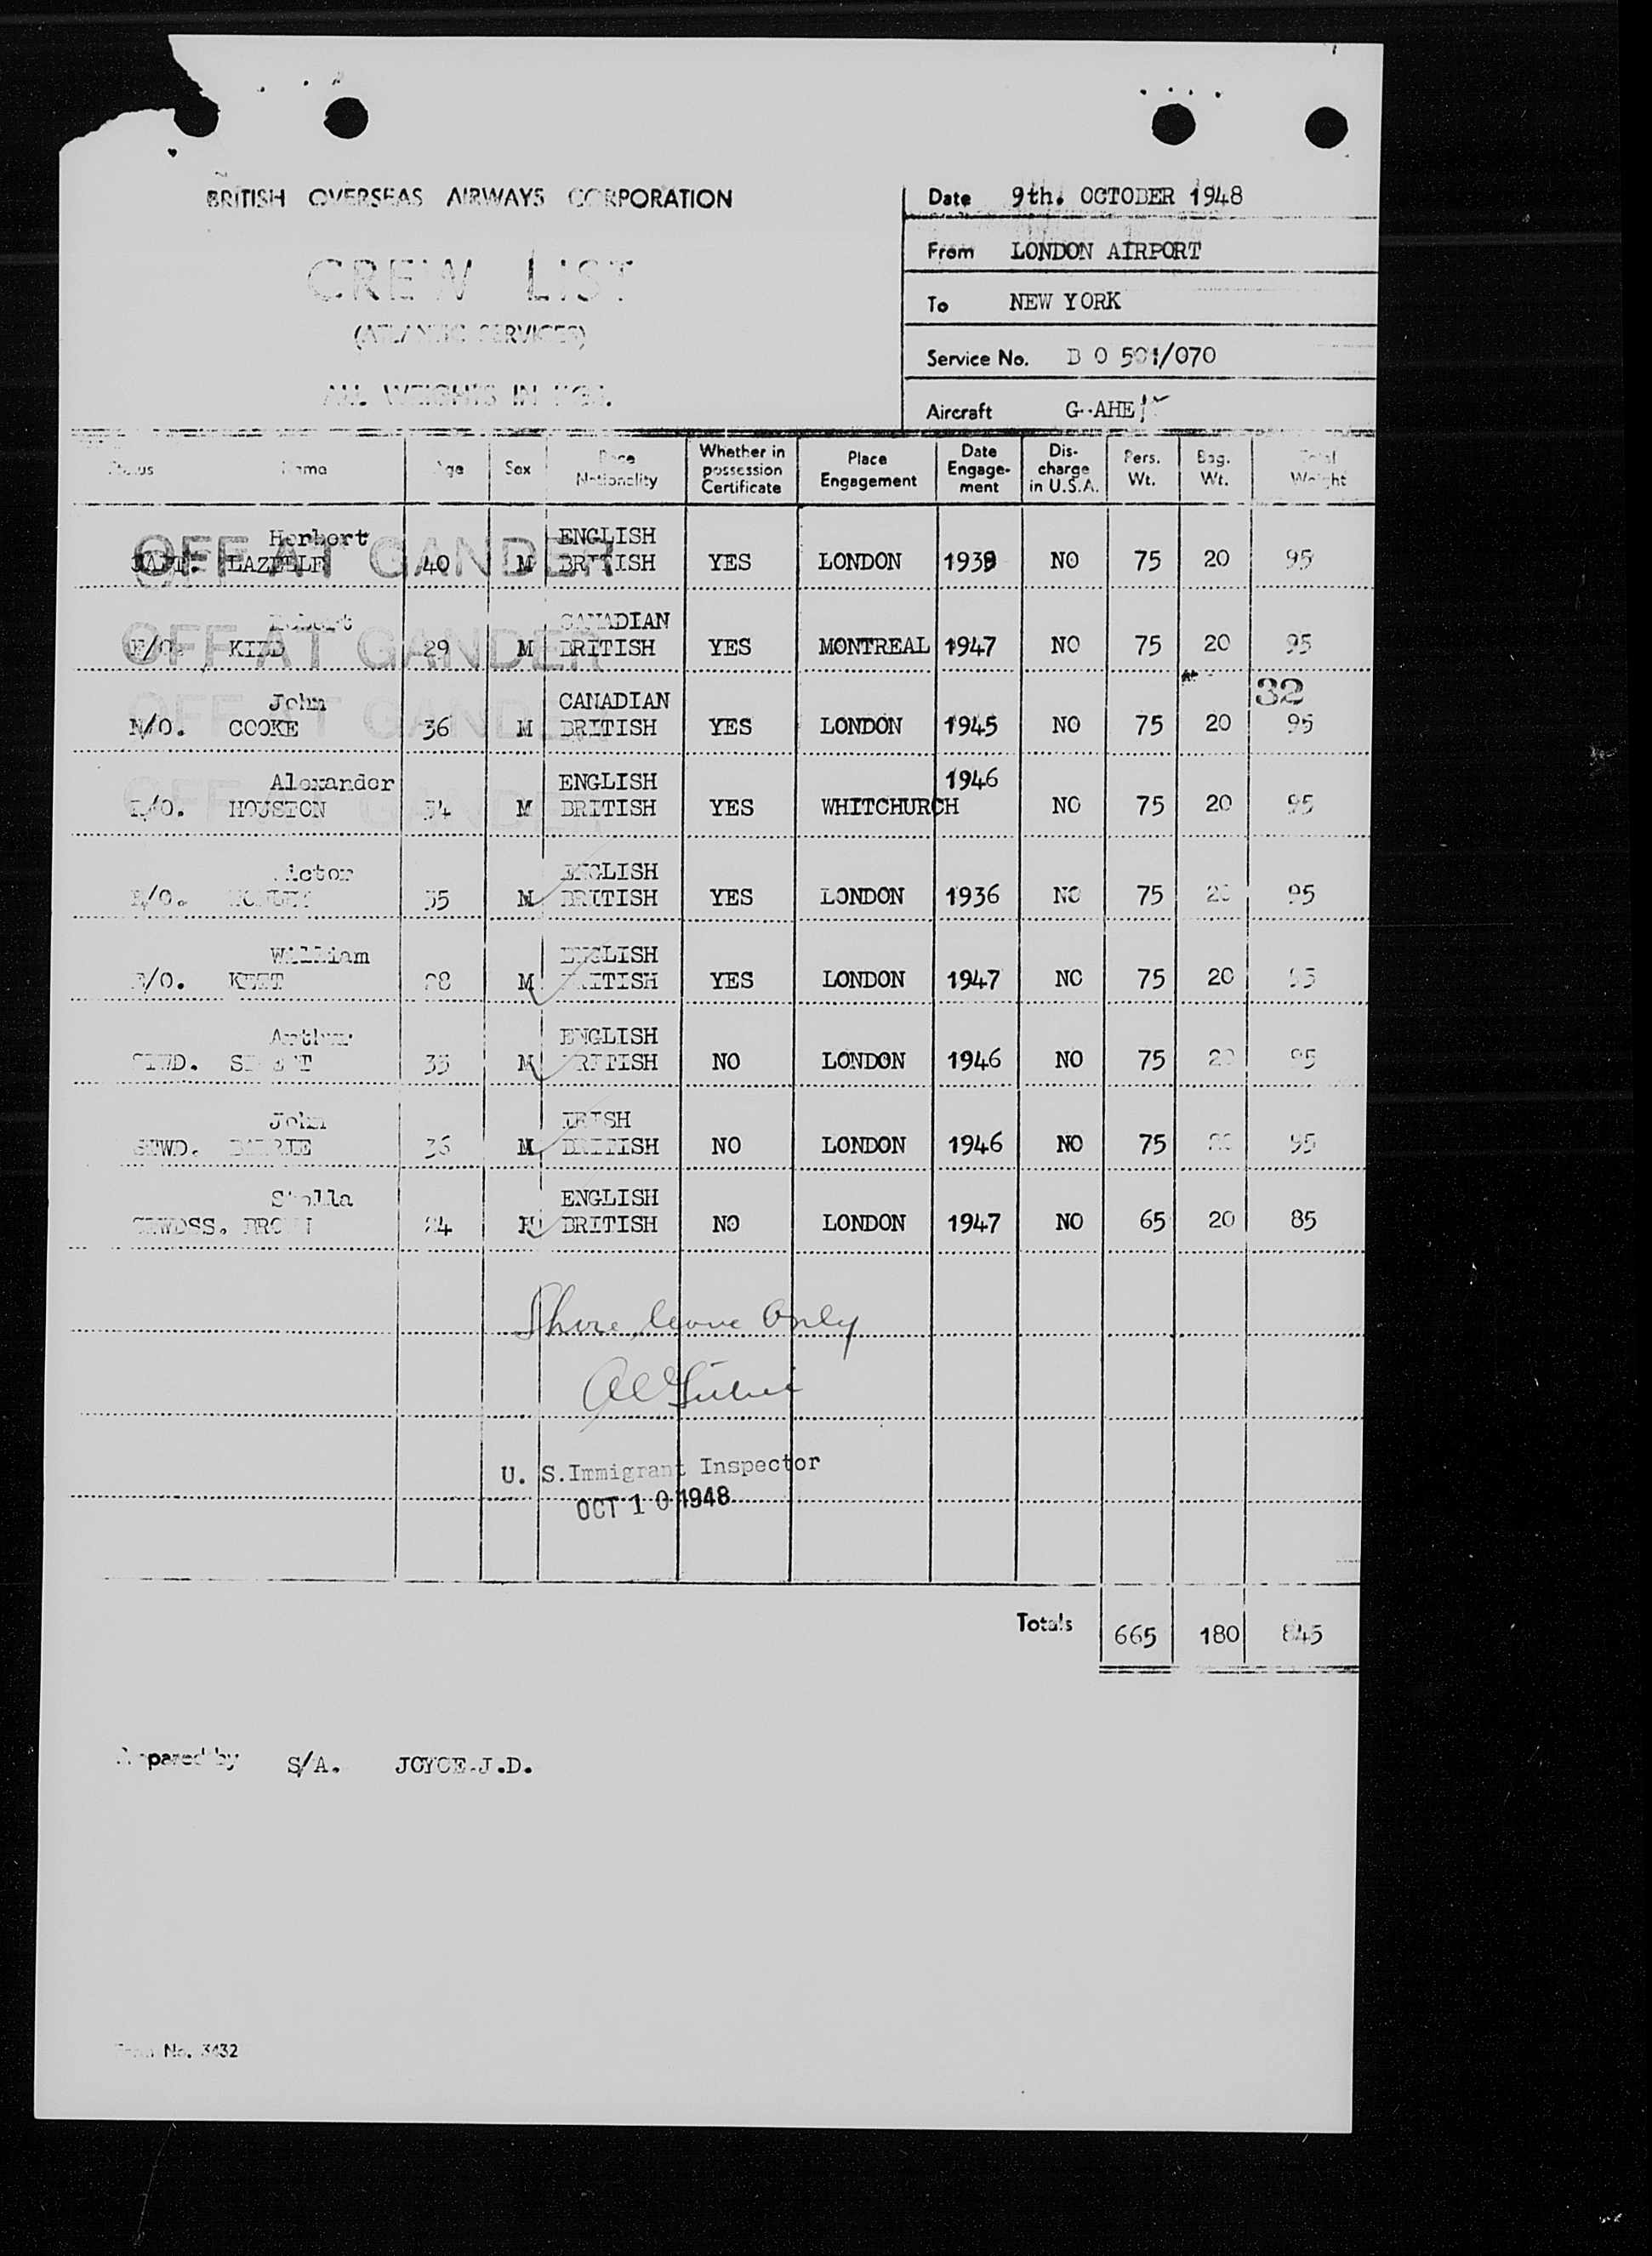 BRITISH OVERSEAS AIRWAYS CORPORATION
CREW LIST
(ATLANTIC SERVICES)
ALL WEIGHTS IN KGS.
Date 9th. OCTOBER 1948
From LONDON AIRPORT
To NEW YORK
Service No. B O 501/070
Aircraft G-AHE
Status Name Age Sex Race Nationality Whether in possession Certificate Place Engagement Date Engage-ment Dis-charge in U.S.A. Pers. Wt. Bag. Wt. Total Weight
Herbert ENGLISH
CAPT. 40 M BRITISH YES LONDON 1939 NO 75 20 95
OFF AT GANDER
Robert CANADIAN
F/O. KIDD 29 M BRITISH YES MONTREAL 1947 NO 75 20 95
OFF AT GANDER
32
John CANADIAN
N/O. COOKE 36 M BRITISH YES LONDON 1945 NO 75 20 95
OFF AT GANDER
Alexander ENGLISH 1946
R/O. HOUSTON 34 M BRITISH YES WHITCHURCH NO 75 20 95
OFF AT GANDER
Victor ENGLISH
E/O. 35 M BRITISH YES LONDON 1936 NO 75 20 95
William ENGLISH
E/O. 28 M BRITISH YES LONDON 1947 NO 75 20 95
Arthur ENGLISH
STWD. 33 M BRITISH NO LONDON 1946 NO 75 20 95
John IRISH
STWD. BARRIE 36 M BRITISH NO LONDON 1946 NO 75 20 95
Stella ENGLISH
STWDSS. BROWN 24 F BRITISH NO LONDON 1947 NO 65 20 85
Shore leave Only
U. S. Immigrant Inspector
OCT 10 1948
Totals 665 180 845
Prepared by S/A. JOYCE.J.D.
Form No. 3432